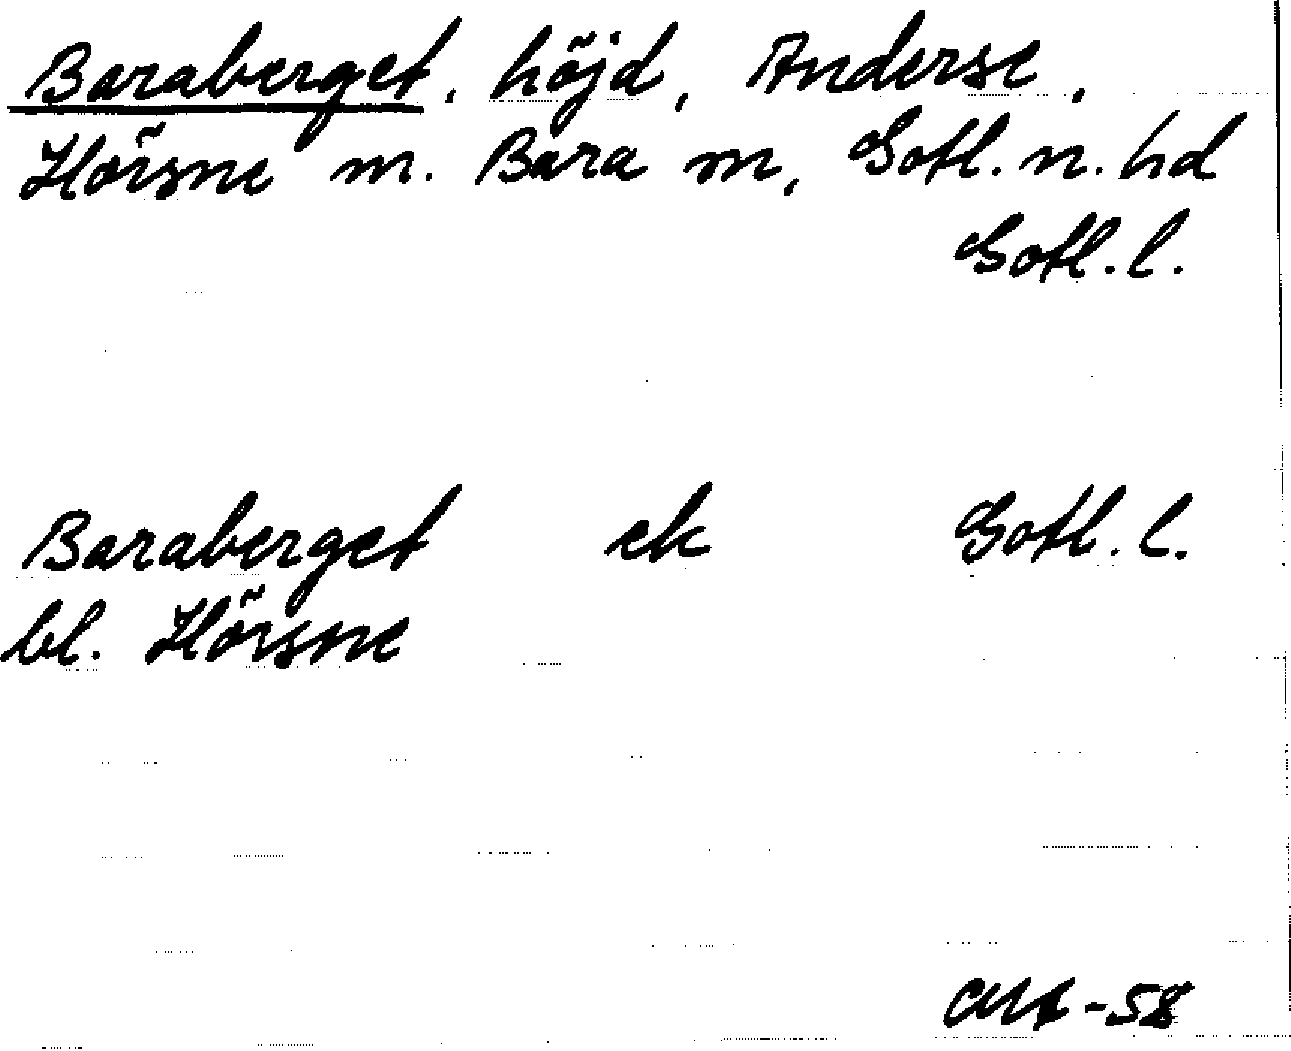 Baraberget, höjd, Anderse,
Hörsne m. Bara sn, Gotl. n. hd
Gotl. l.
Baraberget ek Gotl. l.
bl. Hörsne
-58